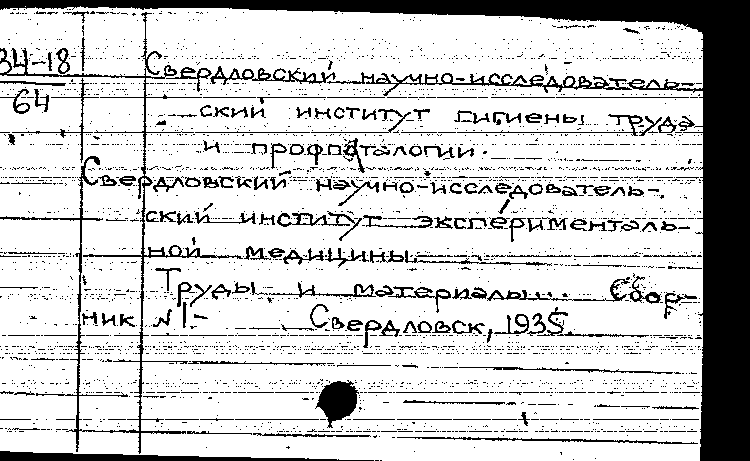 34-18
64
Свердловский научно-исследователь-
ский институт гигиены труда
и профпатологии.
Свердловский научно-исследователь-
ский институт эксперименталь-
ной медицины.
Труды и материалы... Сбор-
ник №1-
Свердловск, 1935.